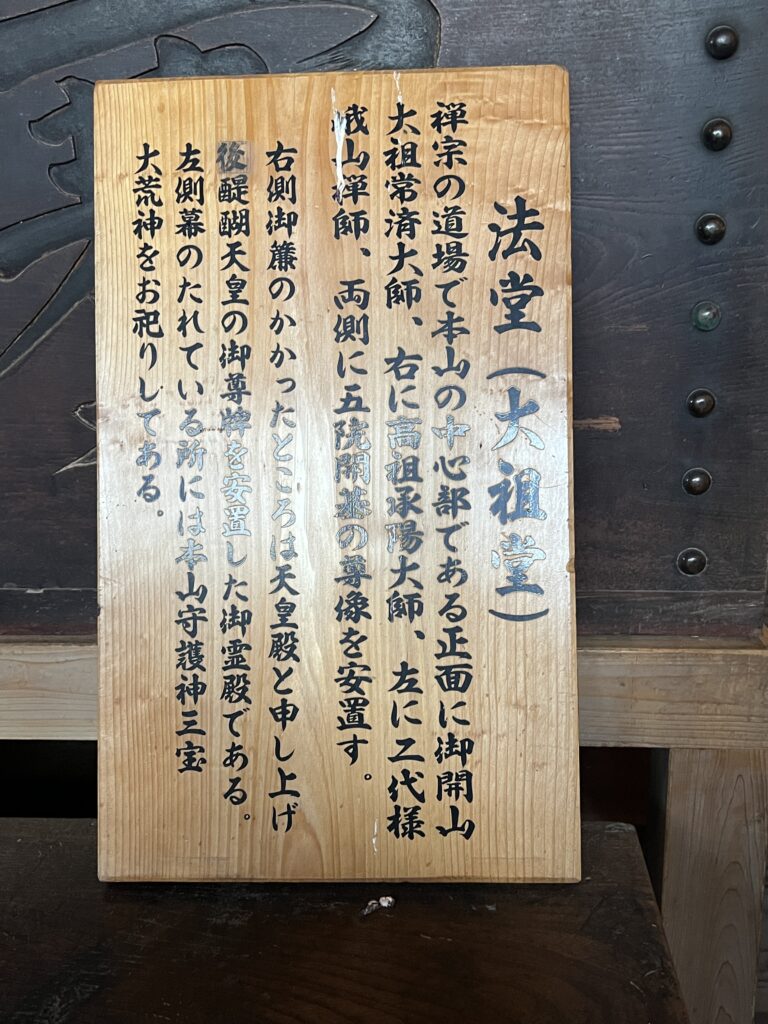 法堂(大祖堂)
禅宗の道場で本山の中心部である正面に御開山
太祖常済大師、右に高祖承陽大師、左に二代様
峨山禅師、両側に五院開基の尊像を安置す。
右側御簾のかかったところは天皇殿と申し上げ
後醍醐天皇の御尊牌を安置した御霊殿である。
左側幕のたれている所には本山守護神三宝
大荒神をお祀りしてある。